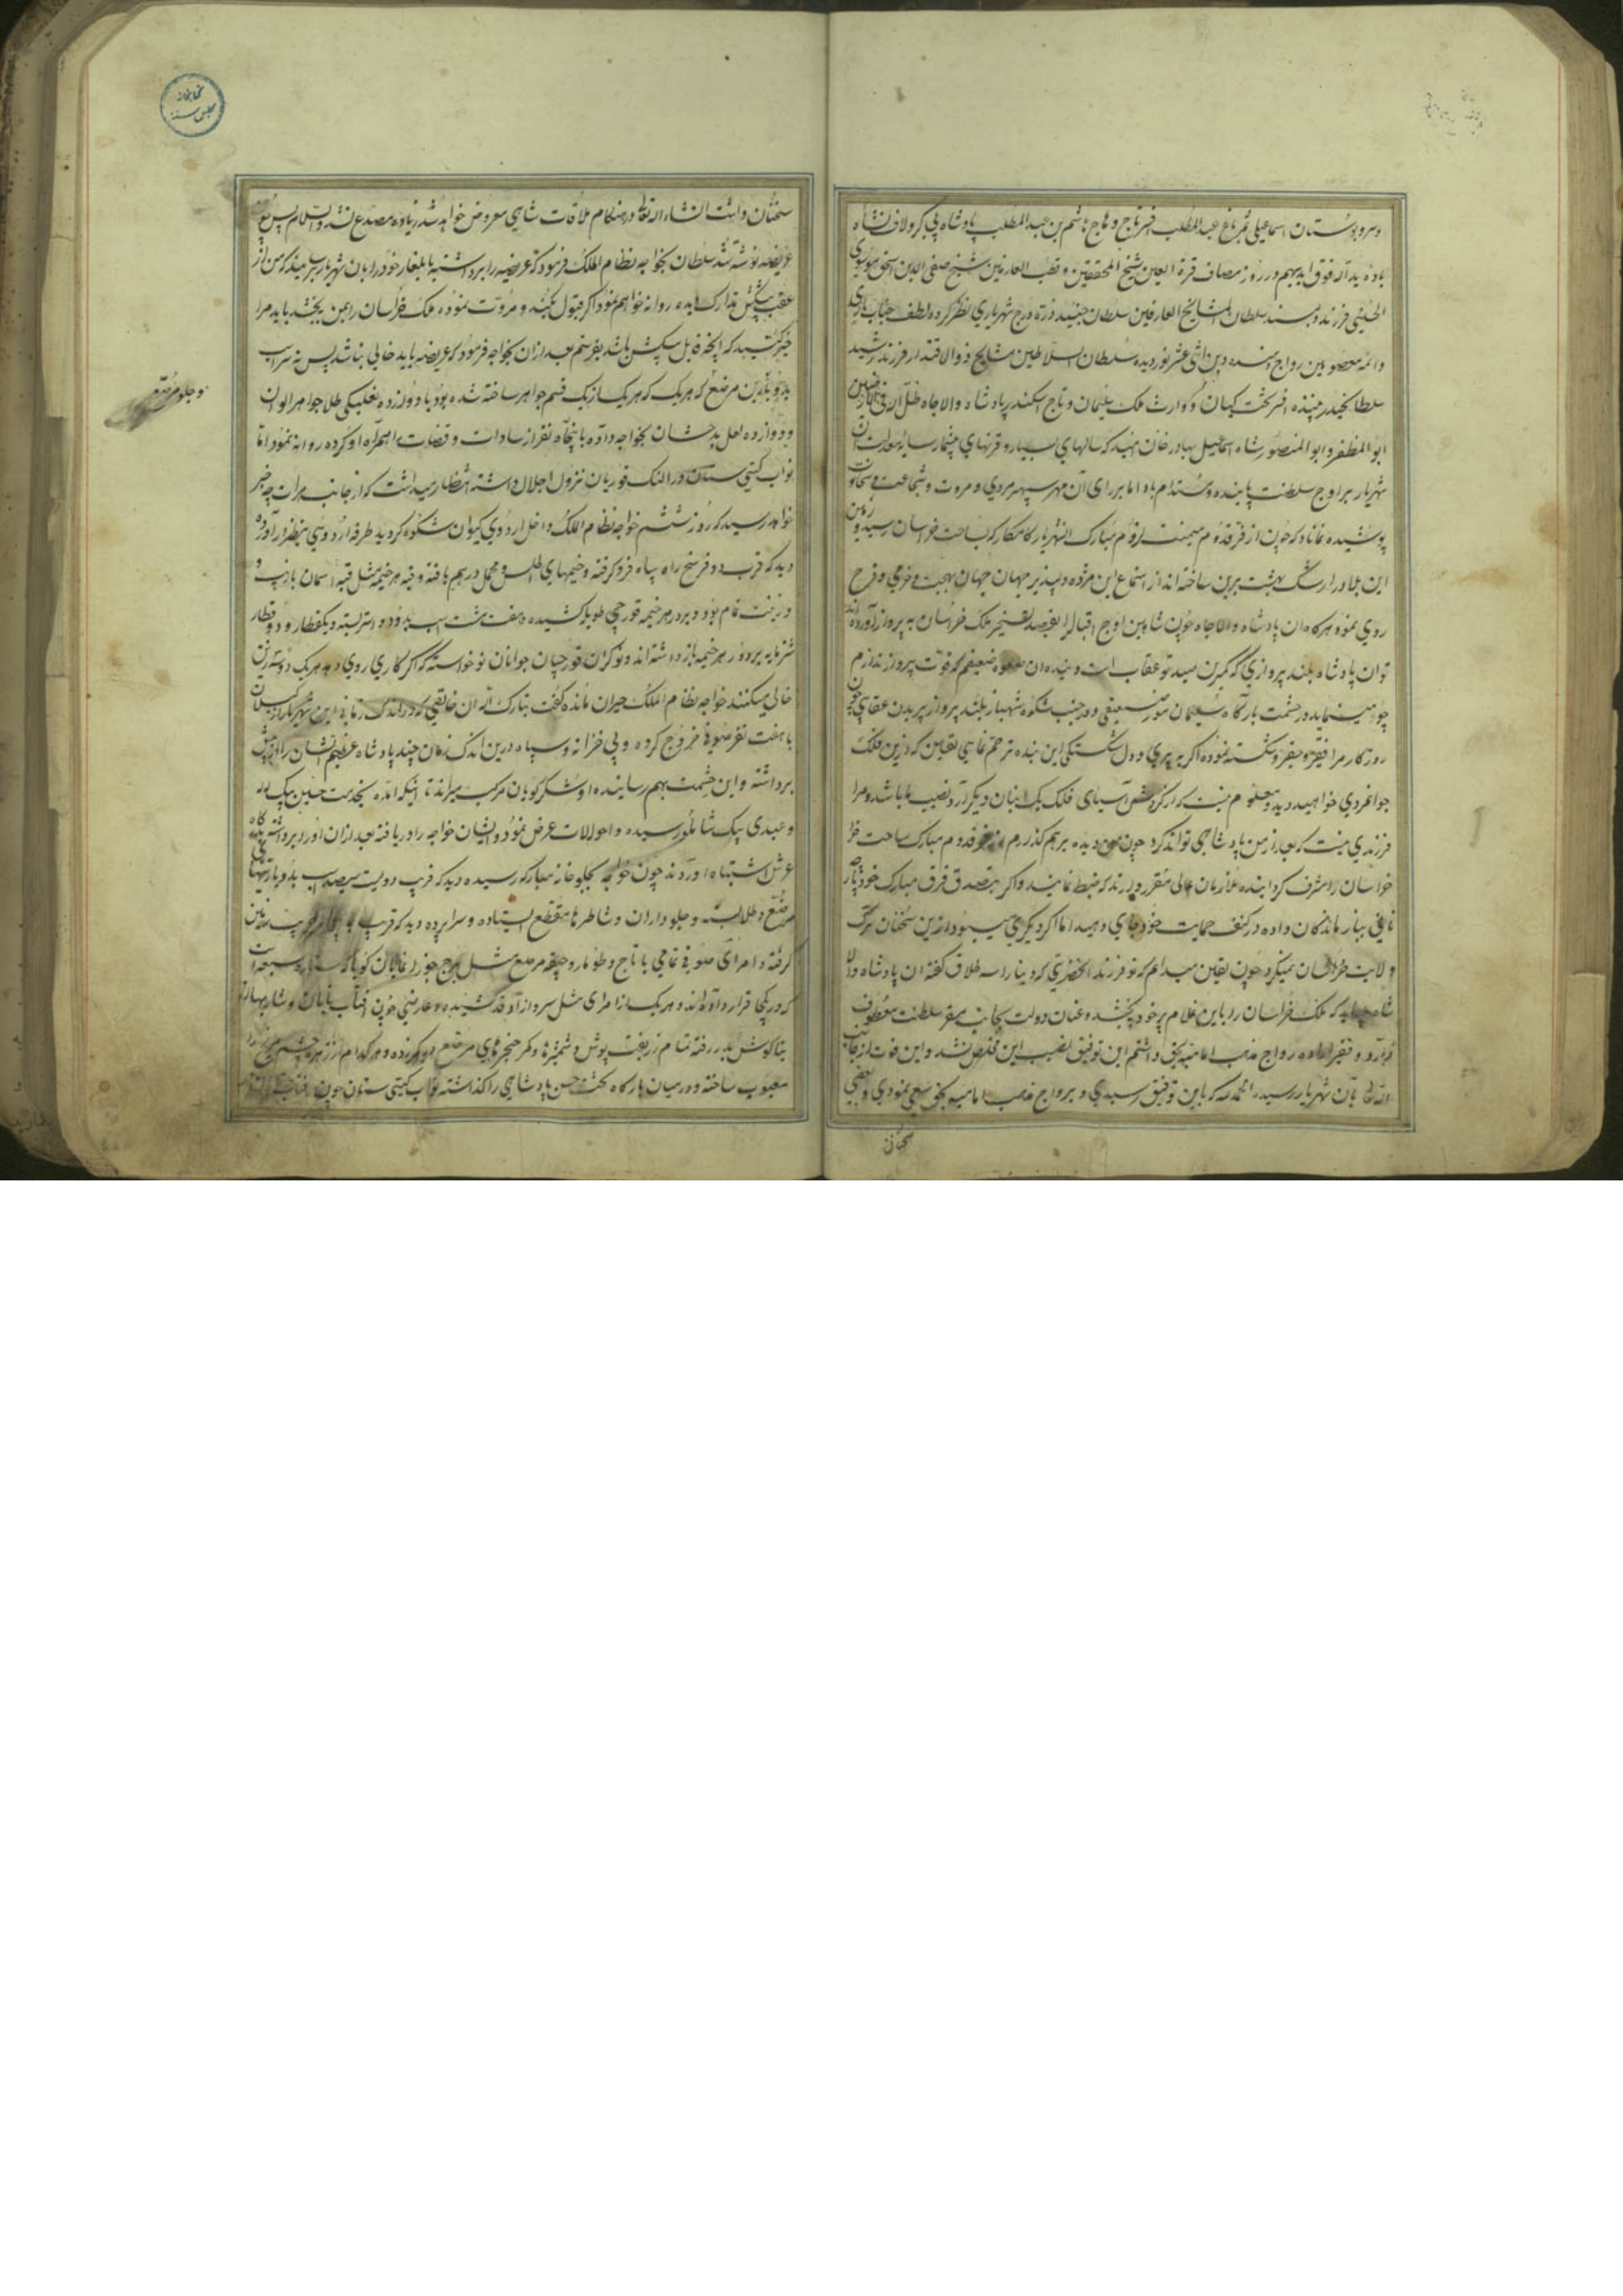 و سرو بوستان اسماعیلی ثمر باغ عبدالمطلب افسر تاج و هاج هاشم بن عبدالمطلب پادشاه پی کر ولاف نشاه
باده ید الله فوق ایدیهم در روز مصاف قرة العین شیخ المحققین و قطب العارفین شیخ صفی الدین اسحق موسوی
الحسینی فرزند دلبسند سلطان المشایخ العارفین سلطان جنید دره درج شهریاری نظر کرده لطف جناب باری
و ائمه معصومین رواج دهنده دین اثنی عشر نور دیده سلطان السلاطین مشایخ ذوالاقتدار فرزند رشید
سلطان حیدر زیبنده افسر تخت کیان و وارث ملک سلیمان و تاج اسکندر پادشاه والاجاه ظل الله فی الارضین
ابو المظفر و ابو المنصور شاه اسماعیل بهادر خان امید که سالهای بسیار و قرنهای بیشمار سایه معدلت آن
شهریار بر اوج سلطنت پاینده و مستدام باد اما بر رای آن مهر سپهر مردی و مروت و شجاعت و سخاوت
پوشیده نماناد که چون از فر قدوم میمنت لزوم مبارک آن شهریار کامکار که بساحت خراسان رسید و زمین
این بلاد را رشک بهشت برین ساخته اند از استماع این مژده دلپذیر جهان جهان بهجت و خرمی و فرح
روی نمود هر گاه آن پادشاه والاجاه چون شاهین اوج اقبال را بقصد تسخیر ملک خراسان به پرواز آورده اند
توان پادشاه بلند پروازی که کمترین صید تو عقاب است و بنده آن صعوه ضعیفم که قوت پرواز ندارم
چو مینماید در حشمت بارگاه سلیمان مور ضعیفی و در جنب شکوه شهباز بلند پرواز پریدن عقابی چون
روزگار مرا فقیر و حقیر و شکسته نموده اگر به پیری و دل شکستگی این بنده ترحم نمایی یقین که از این فلک
جوانمردی خواهید دید و معلوم نیست که از گردش آسیای فلک یک انبان دیگر آرد نصیب ما باشد و مرا
فرزندی نیست که بعد از من پادشاهی تواند کرد چون من دیده بر هم گذارم قدوم مبارک ساحت
خراسان را مشرف کرد بنده ملازمان عالی مقرر دارند که ضبط نمایند و اگر بتصدق فرق مبارک خود پاره
نانی بباز ماندگان داده در کنف حمایت خود جای دهید اما اگر دیگری میبود از این سخنان ترک
ولایت خراسان نمیکرد چون یقین میدانم که تو فرزند آنحضرتی که دینا را سه طلاق گفته آن پادشاه والا
شاه میباید که ملک خراسان را باین غلام پیر خود بخشد و عنان دولت بجانب مقر سلطنت معطوف
فرماید و فقیر اراده رواج مذهب امامیه بحق داشتم این توفیق نصیب این مخلص نشد و این قوت از جانب
الله تعالی بآن شهریار رسیده الحمدلله که باین توفیق رسیدی و برواج مذهب امامیه بحق سعی نمودی و بعضی
سخنان
سخنان داشت انشاءالله تعالی در هنگام ملاقات شاهی معروض خواهد شد زیاده مصدع نشد والسلام پس چون
عریضه نوشته شد سلطان بخواجه نظام الملک فرمود که عریضه را برداشته با یلغار خود را بآن شهریار برسانید که من از
عقب پیشکش تدارک دیده روانه خواهم نمود اگر قبول نکند و مروت نموده ملک خراسان را بمن بخشد باید مرا
خبر کنید که آنچه قابل پیشکش باشد بفرستم بعد از آن بخواجه فرمود که عریضه باید خالی نباشد پس نه سر اسب
با زین مرصع که هر یک از یک قسم جواهر ساخته شده بود با دوازده نعلبکی طلا جواهر الوان
و دوازده لعل بدخشان بخواجه داده با پنجاه نفر از سادات و قضات همراه او کرده روانه نمود اما
نواب گیتی ستان در النک قوریان نزول اجلال داشته انتظار میداشت که از جانب هرات چه خبر
خواهد رسید که روز ششم خواجه نظام الملک داخل اردوی کیوان شکوه گردید طرفه اردویی بنظر در آورده
دید که قریب دو فرسخ راه سپاه فرو گرفته و خیمهای اطلس و مخمل در هم بافته و قبه هر خیمه مثل قبه آسمان بازیب و
و زینت تمام بود و بر در هر خیمه قورچی طویله کشیده و هفت هشت اسب بدو و دو استر بسته و یکقطار و دو قطار
شتر مایه بر دور هر خیمه باز داشته اند و نوکران قورچیان جوانان نوخواسته که اگر کاری روی دهد هر یک دسته ترکش
خالی میکنند خواجه نظام الملک حیران مانده گفت تبارک الله آن خالقی که در اندک زمانی این شهریار از گیلان
با هفت نفر صوفی خروج کرده و بی خزانه و سپاه در این اندک زمان چند پادشاه عظیم الشان را از پیش
برداشته و این حشمت بهم رسانیده او شکر گویان مرکب میراند تا اینکه آمده بخدمت حسین بیک لله
و عبدی بیک شاملو رسیده و احوالات عرض نمود و ایشان خواجه را دریافته بعد از آن او را برداشته بدرگاه
عرش اشتباه آوردند چون خواجه بجلو خانه مبارکه رسیده دید که قریب دویست سیصد اسب بدو بازینهای
مرصع و طلا بسته و جلوداران و شاطرها مقطع ایستاده و سراپرده دید که قریب به زمین
گرفته و امرای صوفی تمامی با تاج و طومار و جیقه مرصع مثل برج جوزا نمایان گویا که ستاره
که در یکجا قرار داده اند و هر یک از امرای مثل سرو آزاد قد کشیده و عارضی چون آفتاب تابان
تا گوش بدر رفته تمام زربفت پوش و شمشیرها و کمر خنجرهای مرصع
معیوب ساخته و در میان بارگاه تخت حسن پادشاهی را گذاشته نواب گیتی ستان چون آفتاب
و جلو مرصع
کتابخانه مجلس سنا